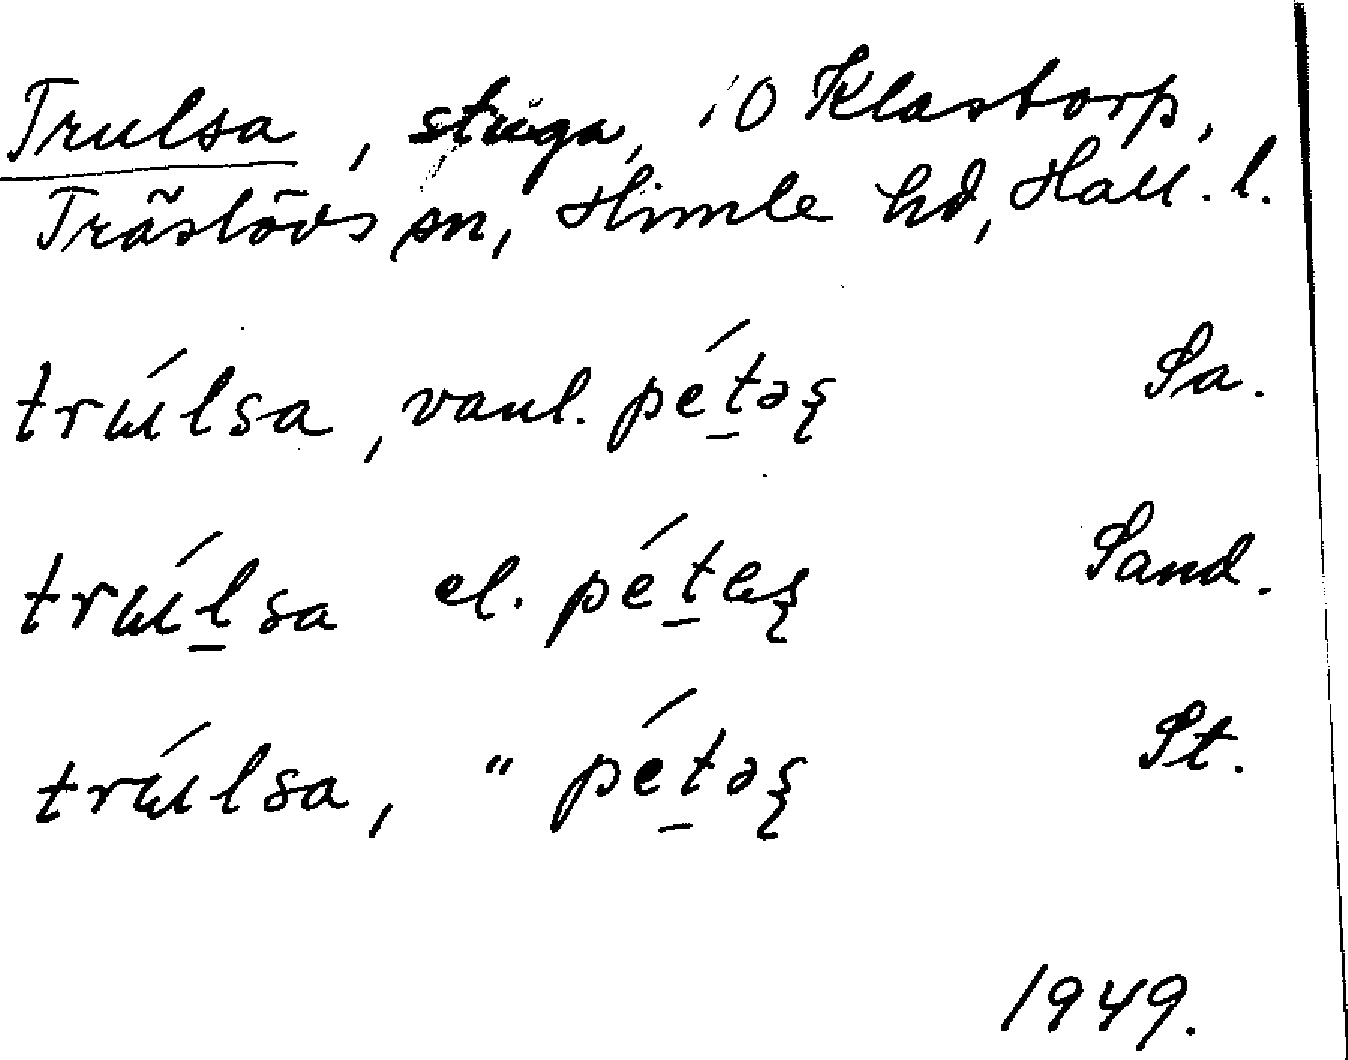 Trulsa, stuga, i O Klastorp,
Träslövs sn, Himle hd, Hall. l.
trɯ́lsa, vanl. pét̲əʂ Sa.
trɯ́l̲sa el. pét̲æʂ Sand.
trɯ́lsa, " pét̲əʂ St.
1949.